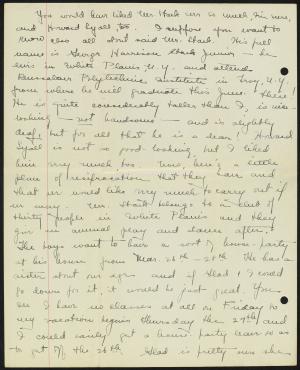 You would have liked Mr. Stark ever so much, I'm sure,
and Howard Lyall too. I suppose you want to
know also all about said Mr. Stark. His full
name is George Harrison Stark Junior — he
lives in White Plains, N.Y. and attends
Rensselaer Polytechnic Institute in Troy, N.Y.
from where he will graduate this June. There!
He is quite considerably taller than I, is nice-
looking — not handsome — and is slightly
deaf, but for all that he is a dear! Howard
Lyall is not so good-looking, but I liked
him very much too. Now, here's a little
plan of reciprocation that they have and
that we would like very much to carry out if
we may. Mr. Stark belongs to a club of
thirty people in White Plains and they
give an annual play and dance after.
The boys want to have a sort of house-party
at his house from Mar. 26th - 28th. He has a
sister about our age and if Glad & I could
go down for it, it would be just great. You
see I have no classes at all on Friday so
my vacation begins Thursday the 27th and
I could easily get a house-party leave so as
to get off the 26th. Glad is pretty sure she